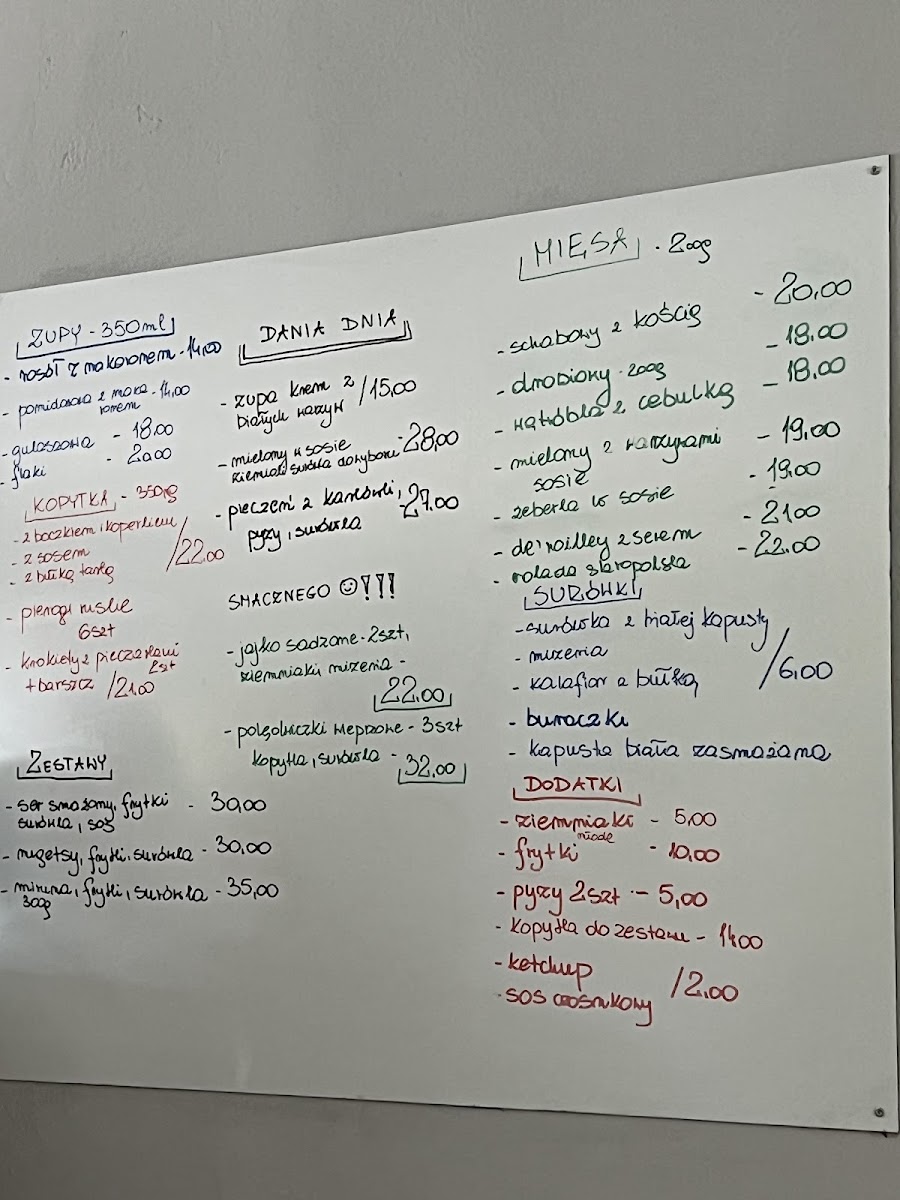 ZUPY - 350ml
- rosół z makaronem - 14,00
- pomidorowa z maka
ronem - 14,00
- gulaszowa - 18.00
- flaki - 20,00
KOPYTKA - 350g
- z boczkiem i koperkiem
- z sosem /22.00
- z bułką tartą
- pierogi ruskie
6szt
- krokiety z pieczarkami
2szt
+ barszcz /21.00
ZESTAWY
- ser smażony, frytki - 30,00
surówka, sos
- nugetsy, frytki, surówka - 30,00
- miruna, frytki, surówka - 35,00
300g
DANIA DNIA
- zupa krem z /15,00
białych warzyw
- mielony w sosie - 28,00
ziemniaki surówka do wyboru
- pieczeń z karkówki, - 27.00
pyzy, surówka
SMACZNEGO ☺!!!
- jajko sadzone - 2szt,
ziemniaki, mizeria -
22.00
- polędwiczki wieprzowe - 3szt
kopytka, surówka - 32,00
MIĘSA . 200g
- schabowy z kością - 20,00
- drobiowy - 200g - 18,00
- wątróbka z cebulką - 18,00
- mielony z warzywami - 19,00
sosie
- żeberka w sosie - 19,00
- de'voilley z serem - 21,00
- rolada staropolska - 22.00
SURÓWKI
- surówka z białej kapusty
- mizeria
- kalafior z bułką /6,00
- buraczki
- kapusta biała zasmażana
DODATKI
- ziemniaki - 5,00
młode
- frytki - 10,00
- pyzy 2szt - 5,00
- kopytka do zestawu - 14,00
- ketchup
- sos czosnkowy /2.00